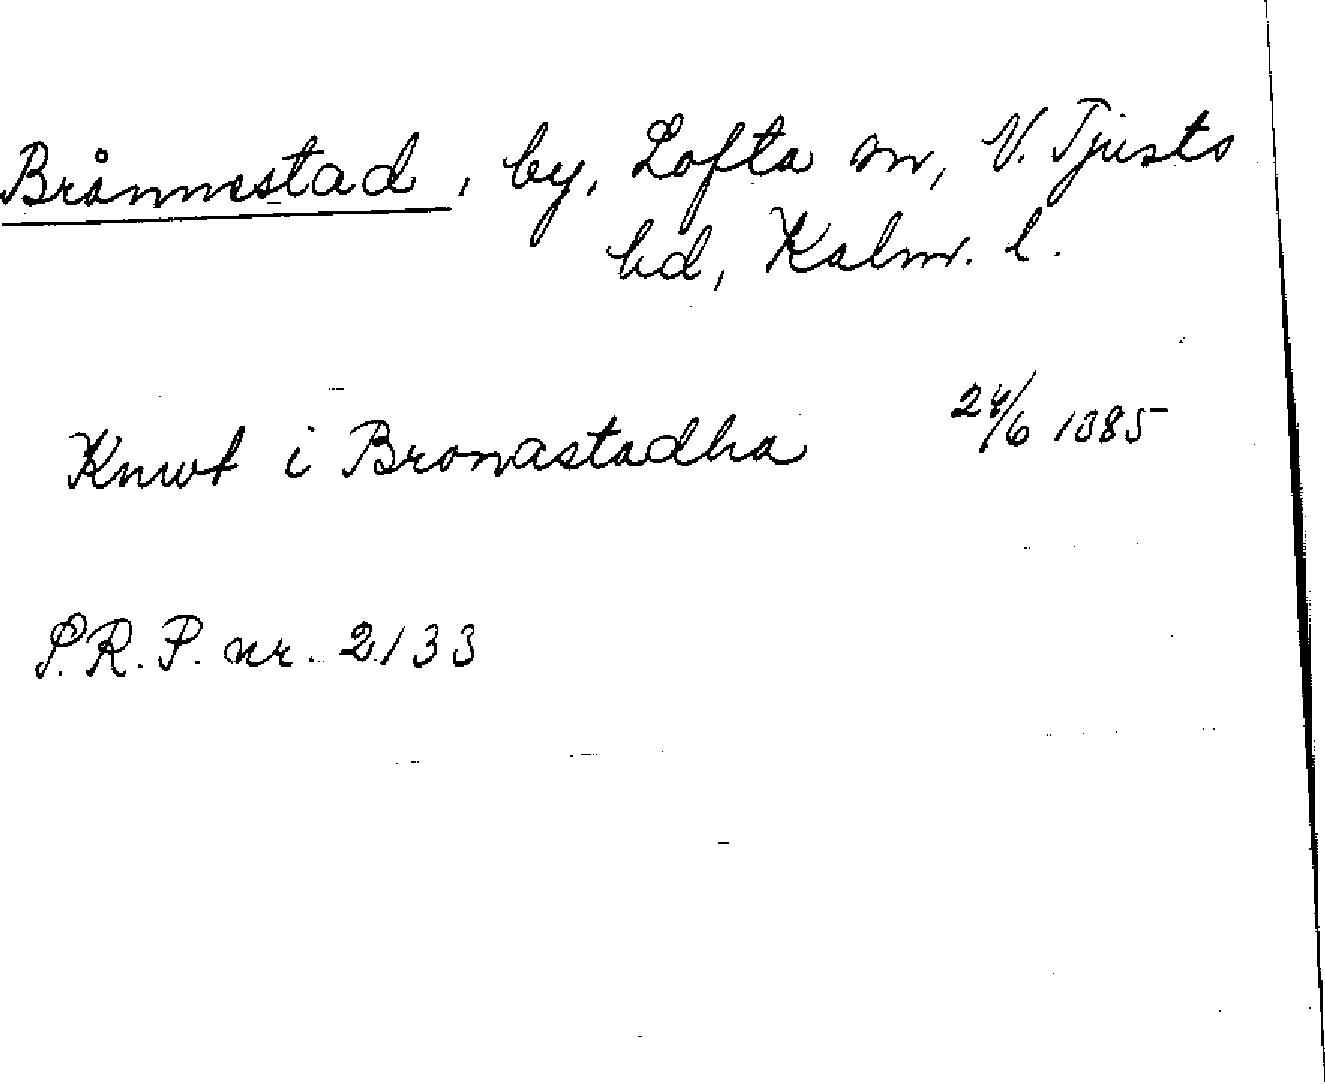 Brånnestad, by, Lofta sn, V. Tjusts
hd, Kalm. l.
Knwt i Bronastadha 24/6 1385
S.R.P. nr. 2133